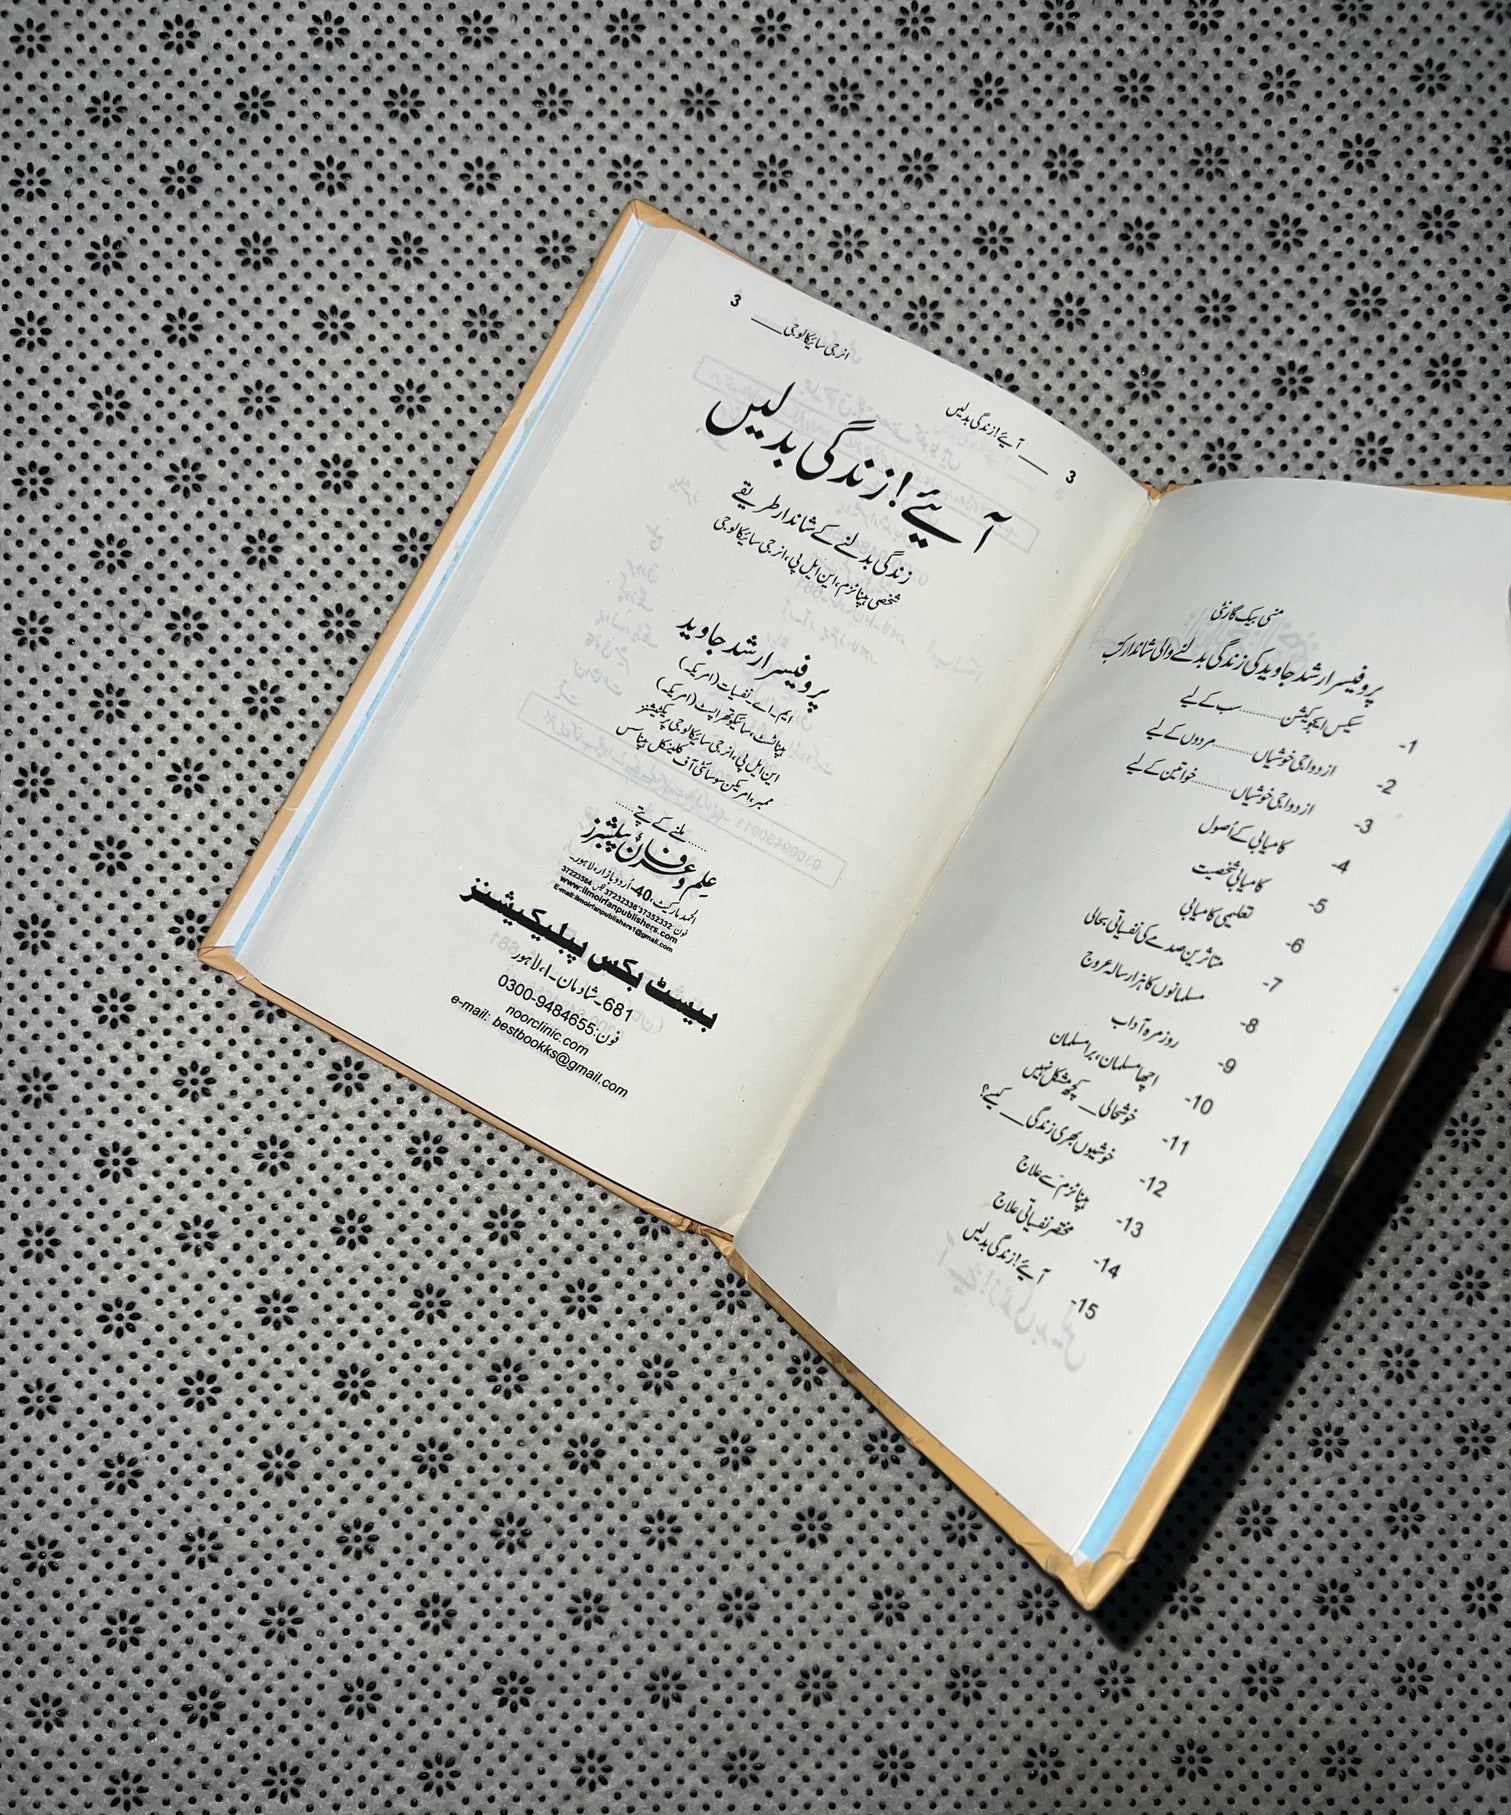 منی بیک گارنٹی
پروفیسر ارشد جاوید کی زندگی بدلنے والی شاندار کتب
1- سیکس ایجوکیشن ........ سب کے لیے
2- ازدواجی خوشیاں ........ مردوں کے لیے
3- ازدواجی خوشیاں ........ خواتین کے لیے
4- کامیابی کے اُصول
5- کامیاب شخصیت
6- تعلیمی کامیابی
7- متاثرین صدمے کی نفسیاتی بحالی
8- مسلمانوں کا ہزار سالہ عروج
9- روزمرہ آداب
10- اچھا مسلمان، برا مسلمان
11- خوشحالی__ کچھ مشکل نہیں
12- خوشیوں بھری زندگی__ کیسے؟
13- ہپناٹزم سے علاج
14- مختصر نفسیاتی علاج
15- آیئے! زندگی بدلیں
3 __ آیئے! زندگی بدلیں
انرجی سائیکالوجی __ 3
آیئے! زندگی بدلیں
زندگی بدلنے کے شاندار طریقے
شخصی ہپناٹزم، این ایل پی، انرجی سائیکالوجی
پروفیسر ارشد جاوید
ایم۔اے۔نفسیات (امریکہ)
ہپناٹسٹ، سائیکوتھراپسٹ (امریکہ)
این ایل پی، انرجی سائیکالوجی پریکٹیشنر
ممبر، امریکن سوسائٹی آف کلینیکل ہپناسس
...... ملنے کے پتے ......
علم و عرفان پبلشرز
الحمد مارکیٹ، 40-اُردو بازار، لاہور۔
فون: 37232336'37352332 37223584
www.ilmoirfanpublishers.com
E-mail: ilmoirfanpublishers1@gmail.com
بیسٹ بکس پبلیکیشنز
681۔شادمان۔I، لاہور
فون: 0300-9484655
noorclinic.com
e-mail: bestbookks@gmail.com